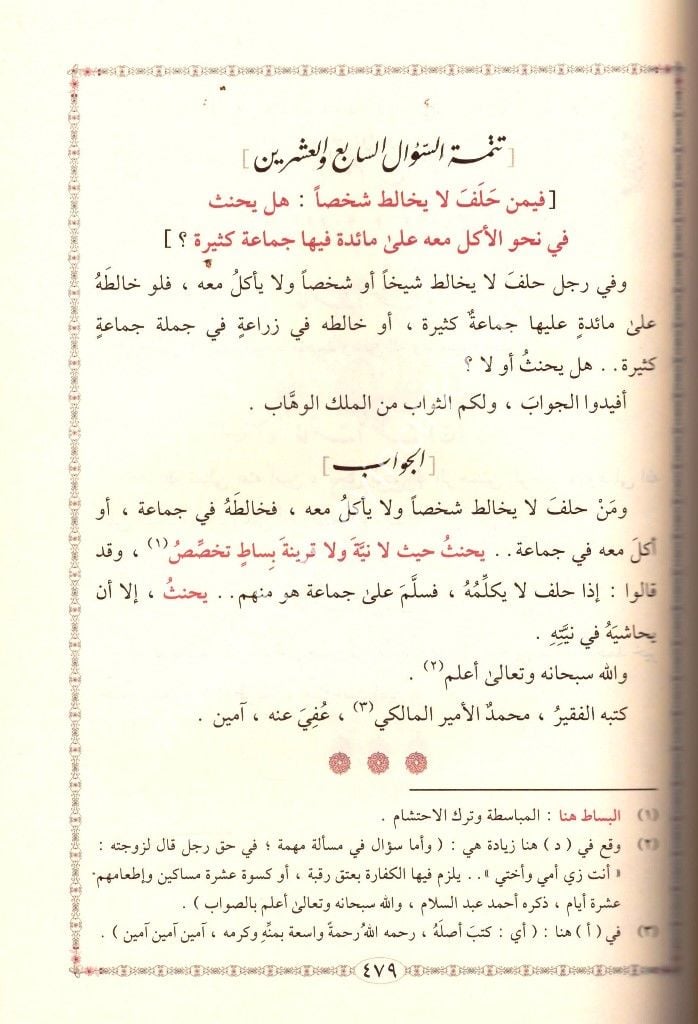 [ تتمة السؤال السابع والعشرين ]
[ فيمن حَلَفَ لا يخالط شخصاً : هل يحنث
في نحو الأكل معه علىٰ مائدة فيها جماعة كثيرة ؟ ]
وفي رجل حلفَ لا يخالط شيخاً أو شخصاً ولا يأكلُ معه ، فلو خالطَهُ
علىٰ مائدةٍ عليها جماعةٌ كثيرة ، أو خالطه في زراعةٍ في جملة جماعةٍ
كثيرة . . هل يحنثُ أو لا ؟
أفيدوا الجوابَ ، ولكم الثواب من الملك الوهَّاب .
[ الجواب ]
ومَنْ حلفَ لا يخالط شخصاً ولا يأكلُ معه ، فخالطَهُ في جماعة ، أو
أكلَ معه في جماعة . . يحنثُ حيث لا نيَّةَ ولا قرينةَ بِساطٍ تخصِّصُ(١) ، وقد
قالوا : إذا حلف لا يكلِّمُهُ ، فسلَّمَ علىٰ جماعة هو منهم . . يحنثُ ، إلا أن
يحاشيَهُ في نيَّتِهِ .
والله سبحانه وتعالىٰ أعلم(٢) .
كتبه الفقيرُ ، محمدٌ الأمير المالكي(٣) ، عُفِيَ عنه ، آمين .
(١) البساط هنا : المباسطة وترك الاحتشام .
(٢) وقع في ( د ) هنا زيادة هي : ( وأما سؤال في مسألة مهمة ؛ في حق رجل قال لزوجته :
« أنت زي أمي وأختي » . . يلزم فيها الكفارة بعتق رقبة ، أو كسوة عشرة مساكين وإطعامهم
عشرة أيام ، ذكره أحمد عبد السلام ، والله سبحانه وتعالىٰ أعلم بالصواب ) .
(٣) في ( أ ) هنا : ( أي : كتبَ أصلَهُ ، رحمه اللهُ رحمةً واسعة بمنِّهِ وكرمه ، آمين آمين آمين ) .
٤٧٩